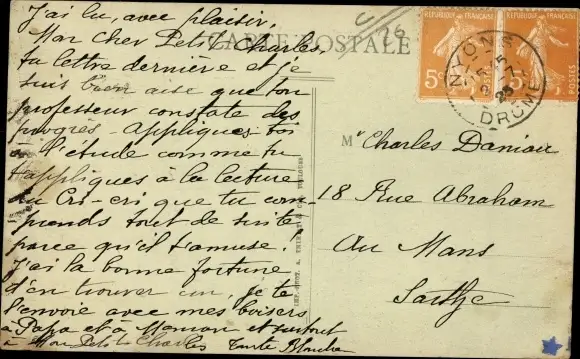 J'ai lu, avec plaisir,
Mon cher Petit Charles,
ta lettre dernière et je
suis bien aise que ton
professeur constate des
progrès. Appliques-toi
à l'étude comme tu
t'appliques à la lecture
du Cri-cri que tu com-
prends tout de suite
parce qu'il t'amuse.
J'ai la bonne fortune
d'en trouver un, je te
l'envoie avec mes baisers
à Papa et à Maman et surtout
à Mon Petit Charles Tante Blanche
CARTE POSTALE
26
RÉPUBLIQUE FRANÇAISE
RÉPUBLIQUE FRANÇAISE
5c
POSTES
NYONS
25
DRÔME
Mr Charles Daniau
18 Rue Abraham
Au Mans
Sarthe